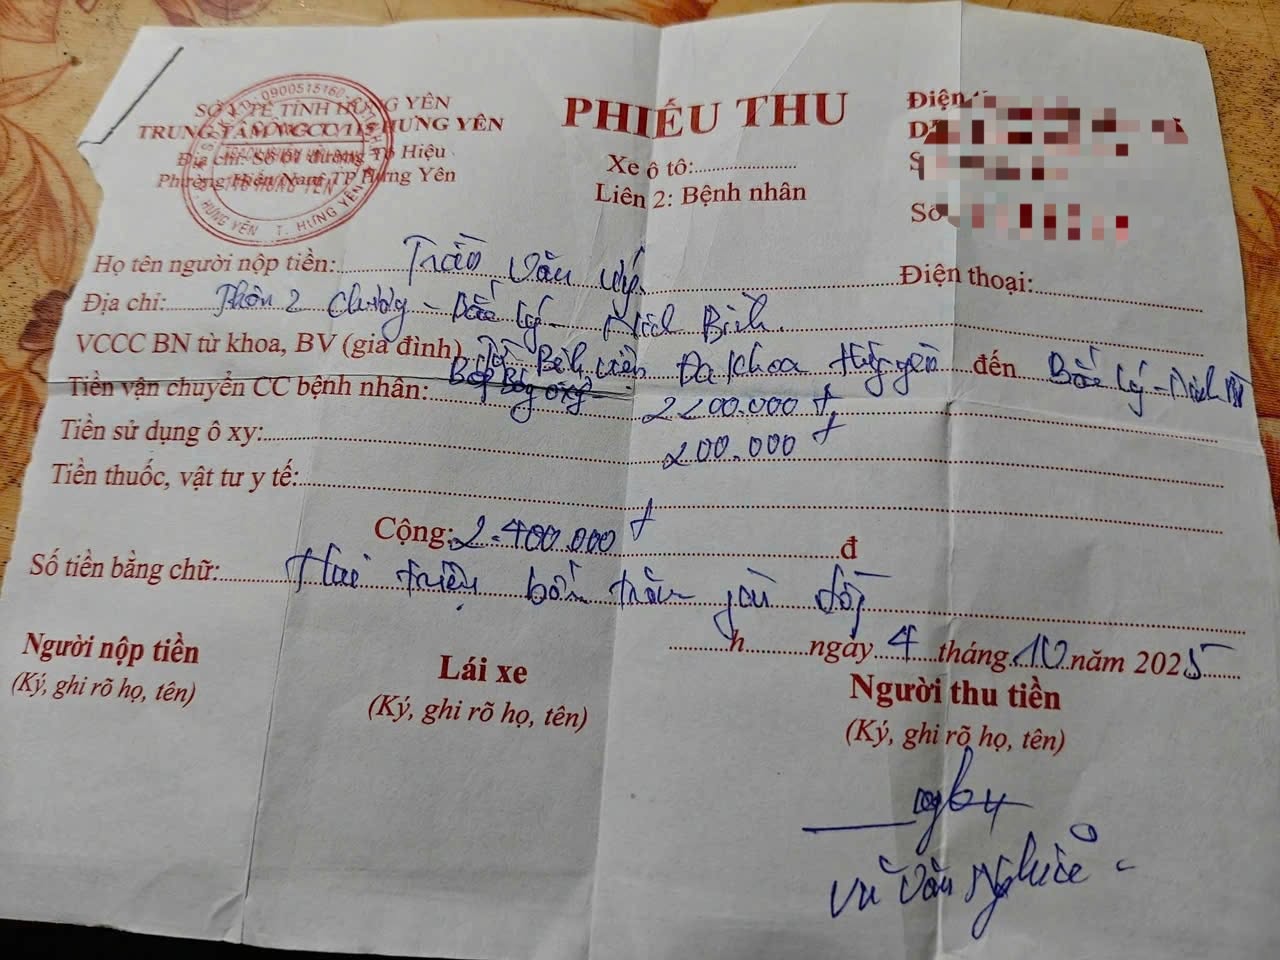 SỞ Y TẾ TỈNH HƯNG YÊN
TRUNG TÂM VCCC 115 HƯNG YÊN
Địa chỉ: Số 01 đường Tô Hiệu
Phường Hiến Nam TP Hưng Yên
0900515160
HƯNG YÊN T. HƯNG YÊN
PHIẾU THU
Xe ô tô:
Liên 2: Bệnh nhân
Điện
Số
Họ tên người nộp tiền: Trần Văn Điện thoại:
Địa chỉ: Thôn 2 - Bắc Lý - Ninh Bình
VCCC BN từ khoa, BV (gia đình) Từ Bệnh viện Đa khoa Hưng yên đến Bắc Lý - Ninh B
Tiền vận chuyển CC bệnh nhân: Bóp Bóng oxy 2200.000 đ
Tiền sử dụng ô xy: 200.000 đ
Tiền thuốc, vật tư y tế:
Cộng: 2.400.000 đ đ
Số tiền bằng chữ: Hai triệu bốn trăm ngàn đồng
h ngày 4 tháng 10 năm 2025
Người nộp tiền
(Ký, ghi rõ họ, tên)
Lái xe
(Ký, ghi rõ họ, tên)
Người thu tiền
(Ký, ghi rõ họ, tên)
Vũ Văn